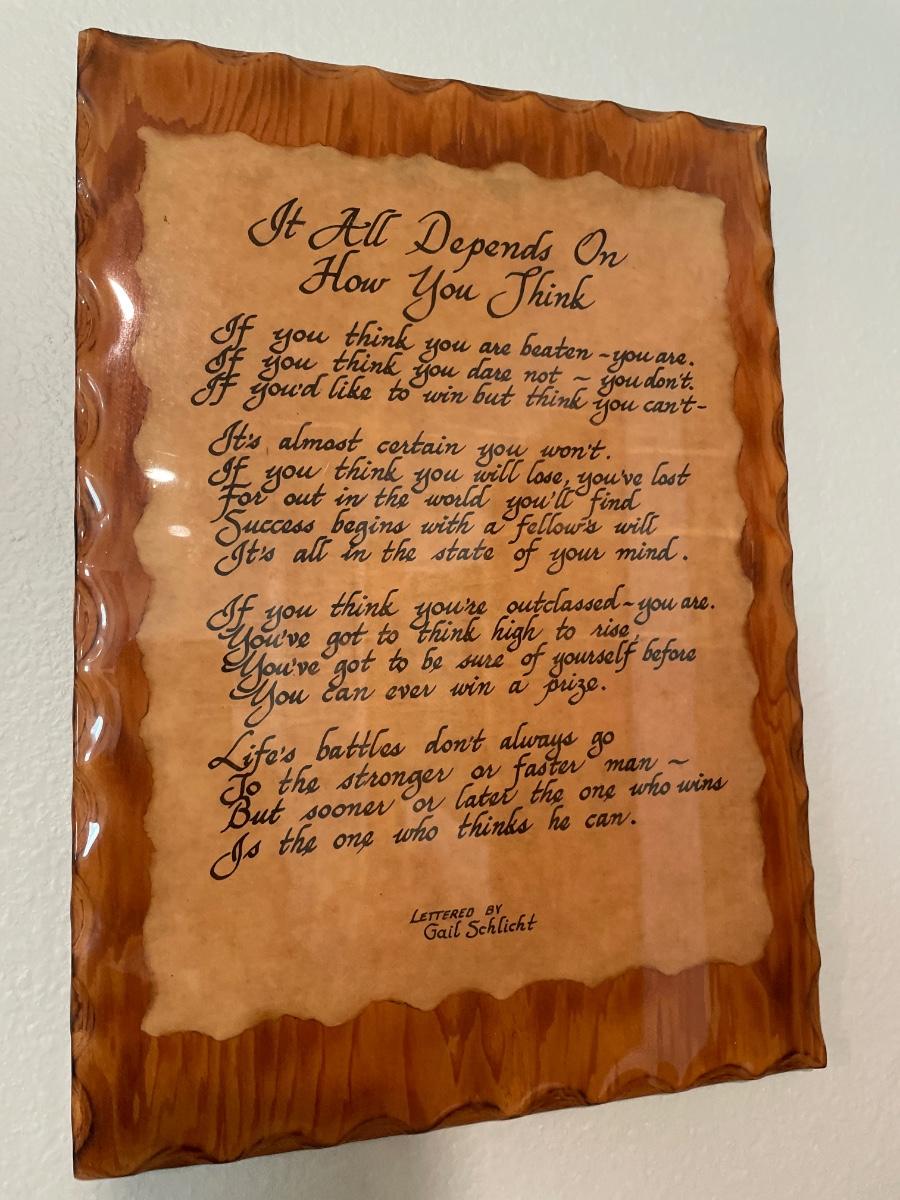 It All Depends On
How You Think
If you think you are beaten ~ you are.
If you think you dare not ~ you don't.
If you'd like to win but think you can't-
It's almost certain you won't.
If you think you will lose, you've lost
For out in the world you'll find
Success begins with a fellow's will
It's all in the state of your mind.
If you think you're outclassed ~ you are.
You've got to think high to rise,
You've got to be sure of yourself before
You can ever win a prize.
Life's battles don't always go
To the stronger or faster man ~
But sooner or later the one who wins
Is the one who thinks he can.
LETTERED BY
Gail Schlicht